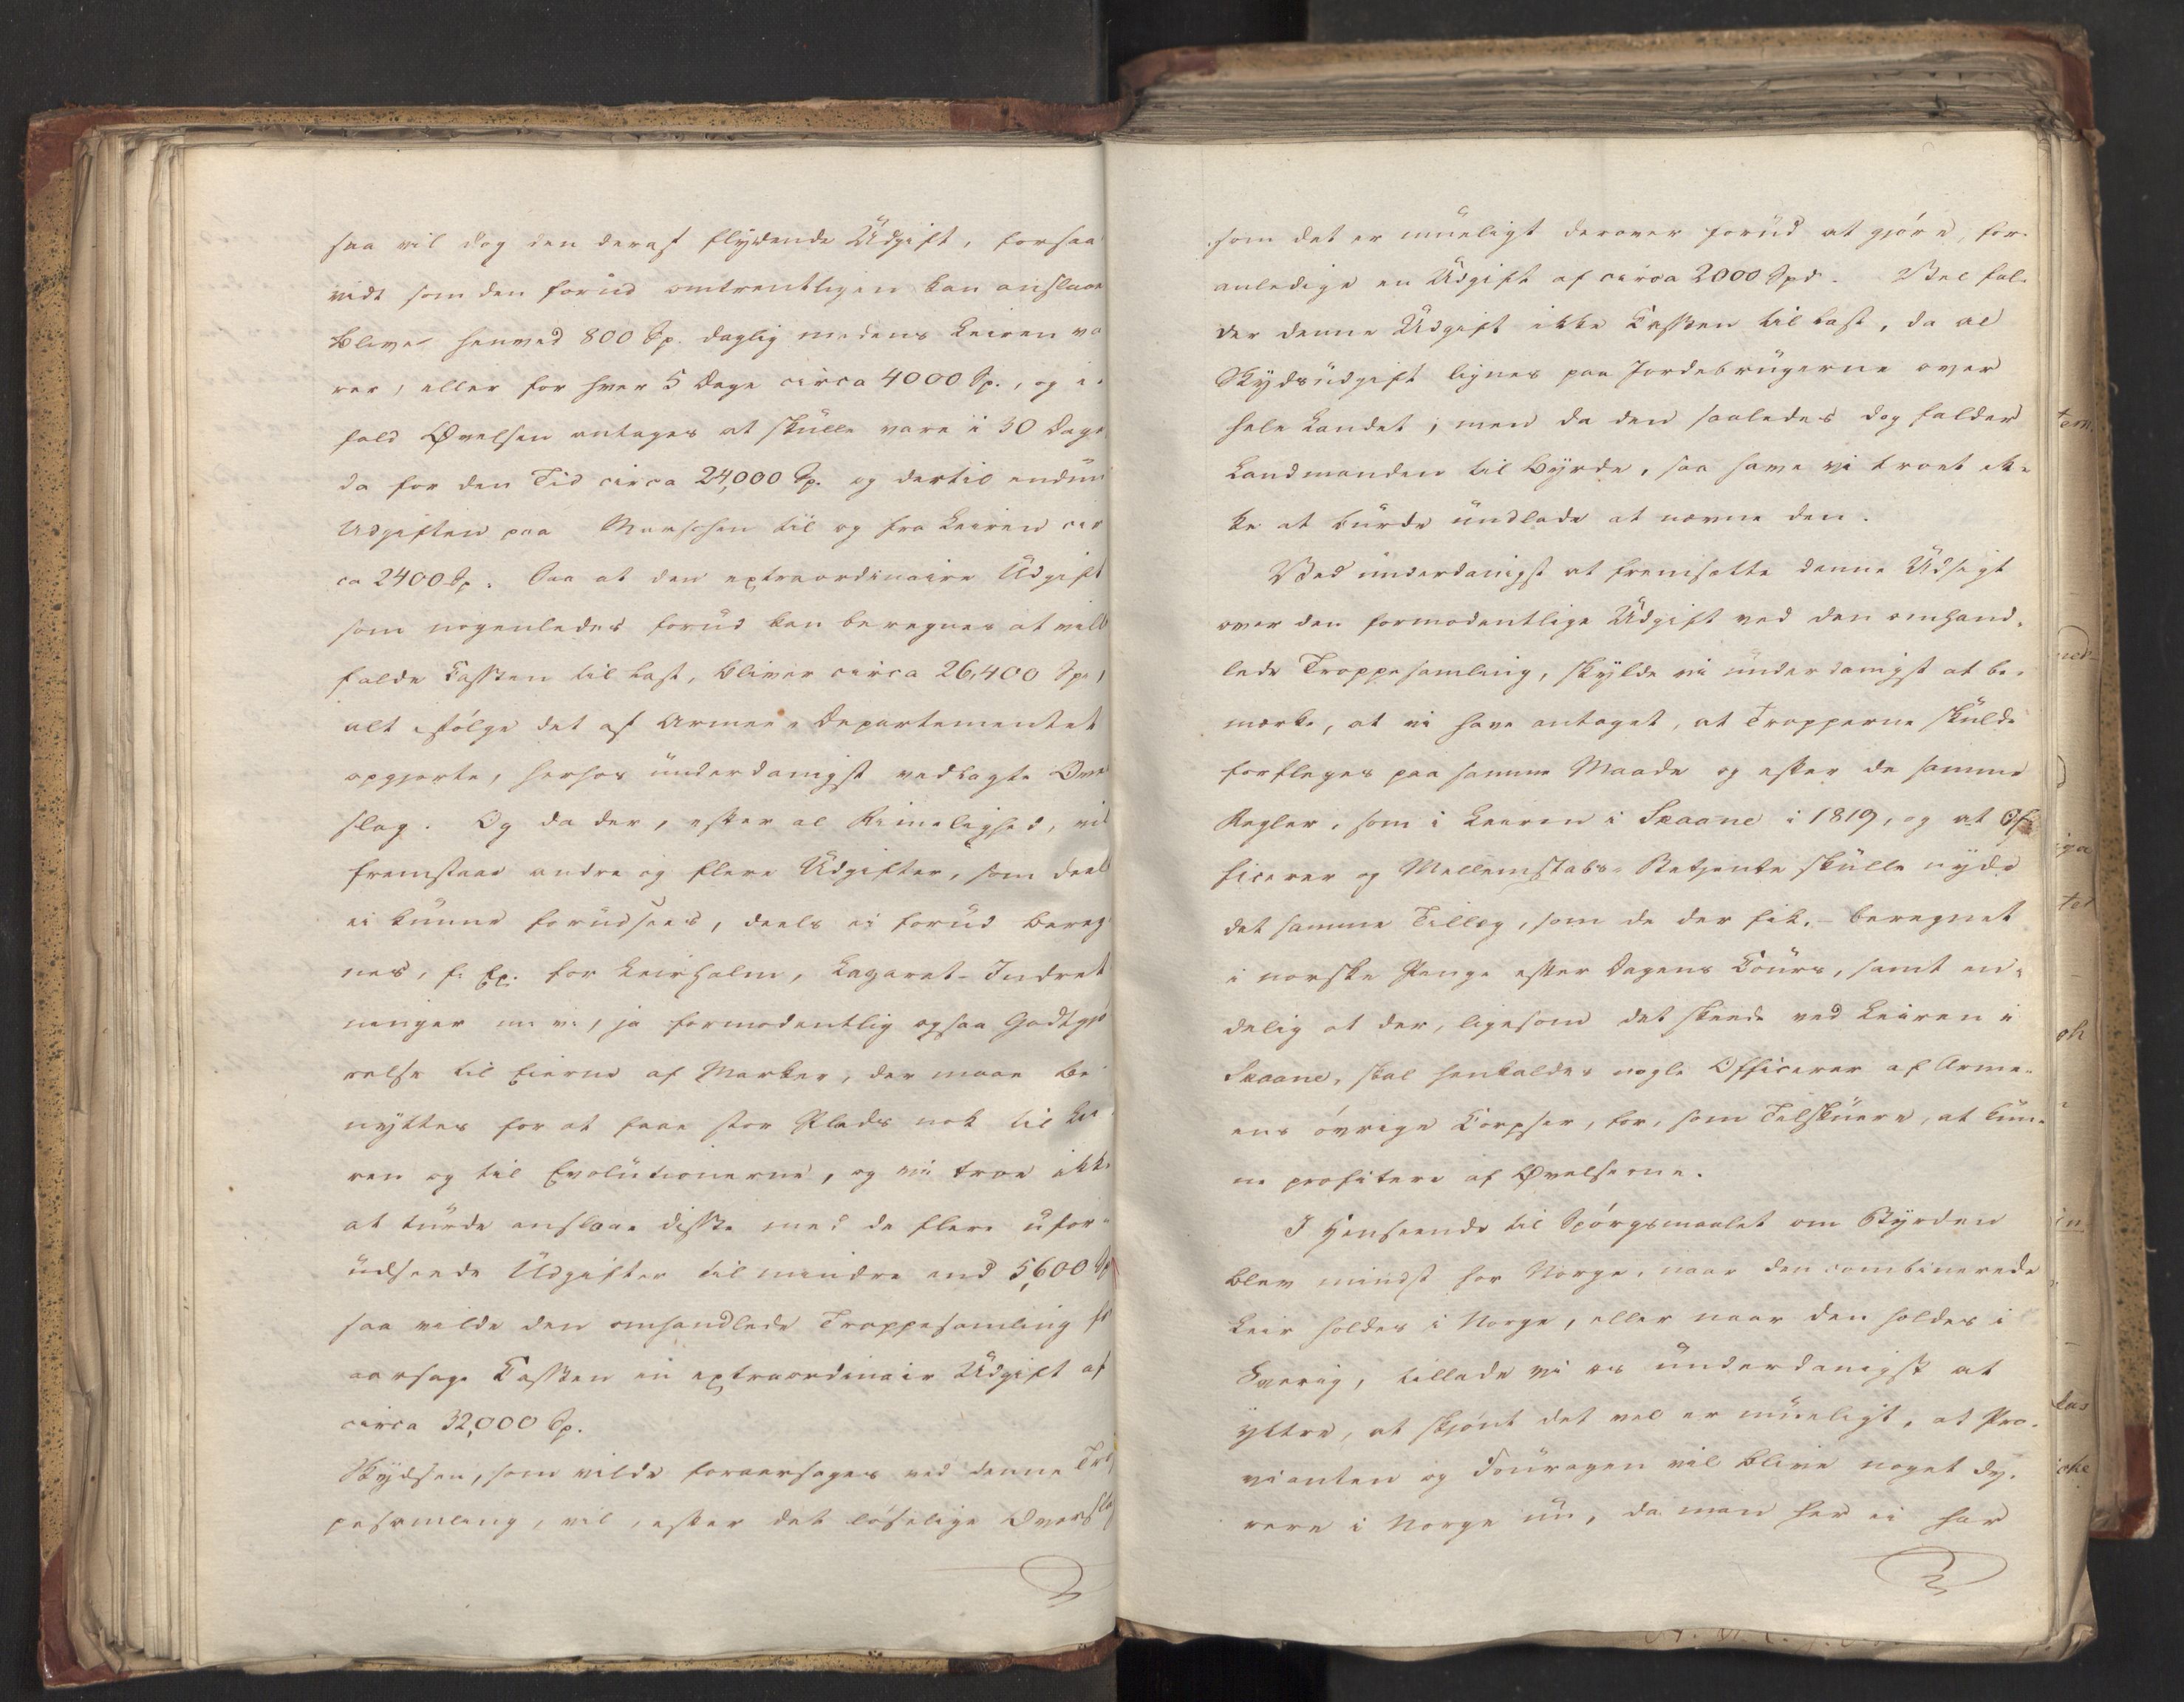 saa vil dog den deraf flydende Udgift, forsaa
vidt som den forud omtrentligen kan anslaaes
blive henved 800 Sp. daglig medens Leiren va
rer, eller for hver 5 Dage circa 4000 Sp., og i
fald Øvelsen antages at skulle vare i 30 Dage
da for den Tid circa 24,000 Sp. og dertil endnu
Udgiften paa Marschen til og fra Leiren cir
ca 2400 Sp. Saa at den extraordinaire Udgift
som nogenledes forud kan beregnes at ville
falde Cassen til Last, bliver circa 26,400 Sp.,
alt ifølge det af Armee-Departementet
opgjorte, herhos underdanigst vedlagte Over
slag. Og da der, efter al Rimelighed, vil
fremstaae andre og flere Udgifter, som deels
ei kunne forudsees, deels ei forud bereg
nes, f. Ex. for Leirhalm, Lazaret-Indret
ninger m. v., ja formodentlig ogsaa Godtgjø
relse til Eierne af Marker, der maae be
nyttes for at faae stor Plads nok til Lei
ren og til Evolutionerne, og vi troe ikke
at turde anslaae disse med de flere ufor-
udseende Udgifter til mindre end 5,600 Sp
saa vilde den omhandlede Troppesamling for
aarsage Cassen en extraordinair Udgift af
circa 32,000 Sp.
Skydsen, som vilde foraarsages ved denne Trop
pesamling, vil, efter det løselige Overslag
som det er mueligt derover forud at gjøre, for-
anledige en Udgift af circa 2000 Spd. Vel fal-
der denne Udgift ikke Cassen til Last, da al
Skydsudgift lignes paa Jordebrugerne over
hele Landet; men da den saaledes dog falder
Landmanden til Byrde, saa have vi troet ik-
ke at burde undlade at nævne den.
Ved underdanigst at fremsætte denne Udsigt
over den formodentlige Udgift ved den omhand-
lede Troppesamling, skylde vi underdanigst at be-
mærke, at vi have antaget, at Tropperne skulde
forpleges paa samme Maade og efter de samme
Regler, som i Leiren i Skaane i 1819, og at Of-
ficerer og Mellemstabs-Betjente skulle nyde
det samme Tillæg, som de der fik, - beregnet
i norske Penge efter Dagens Cours, samt en-
delig at der, ligesom det skeede ved Leiren i
Skaane, skal henkaldes nogle Officerer af Arme-
ens øvrige Corpser, for, som Tilskuere, at kun-
ne profitere af Øvelserne.
I Henseende til Spørgsmaalet om Byrden
blev mindst for Norge, naar den combinerede
Leir holdes i Norge, eller naar den holdes i
Sverig, tillade vi os underdanigst at
yttre, at skjønt det vel er mueligt, at Pro-
vianten og Fouragen vil blive noget dy-
rere i Norge nu, da man her ei har